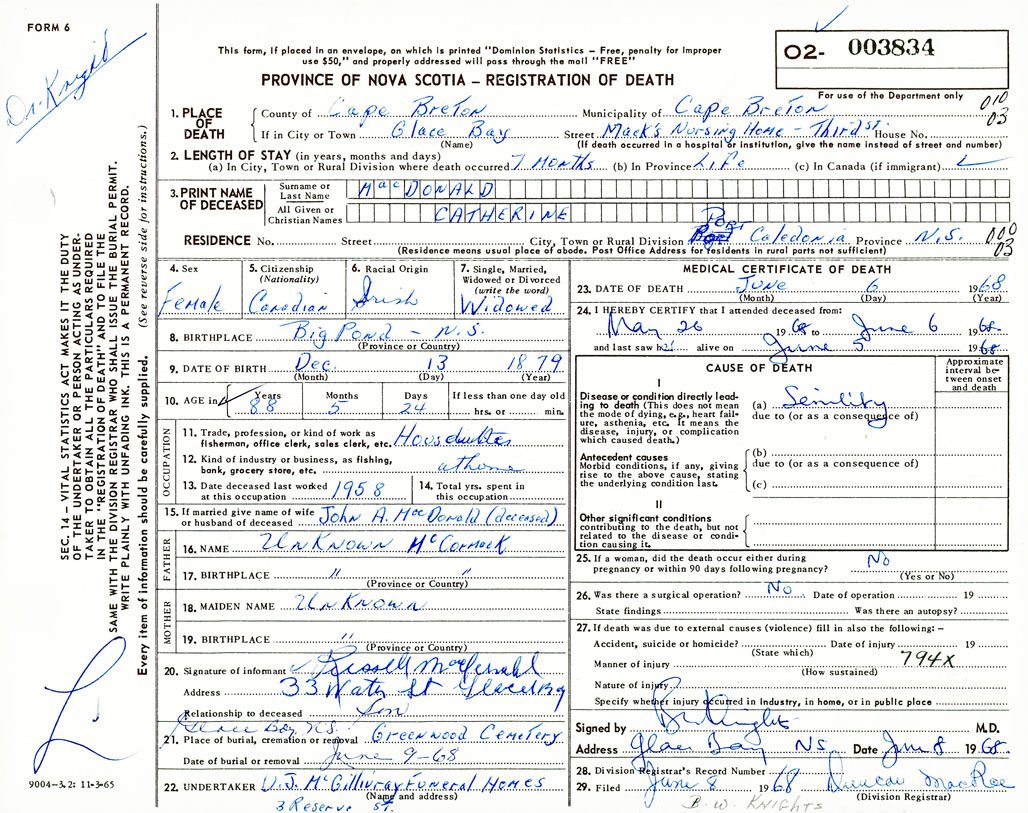 FORM 6
Dr. Knight
This form, if placed in an envelope, on which is printed "Dominion Statistics – Free, penalty for improper
use $50," and properly addressed will pass through the mail "FREE"
PROVINCE OF NOVA SCOTIA – REGISTRATION OF DEATH
02- 003834
For use of the Department only
010
03
1. PLACE OF DEATH
County of Cape Breton Municipality of Cape Breton
If in City or Town Glace Bay Street Mack's Nursing Home – Third St. House No.
(Name) (If death occurred in a hospital or institution, give the name instead of street and number)
2. LENGTH OF STAY (in years, months and days)
(a) In City, Town or Rural Division where death occurred 7 Months (b) In Province Life (c) In Canada (if immigrant)
3. PRINT NAME OF DECEASED
Surname or Last Name MacDONALD
All Given or Christian Names CATHERINE
RESIDENCE No. Street City, Town or Rural Division Port Caledonia Province N.S.
000
03
(Residence means usual place of abode. Post Office Address for residents in rural parts not sufficient)
4. Sex Female
5. Citizenship (Nationality) Canadian
6. Racial Origin Irish
7. Single, Married, Widowed or Divorced (write the word) Widowed
8. BIRTHPLACE Big Pond – N.S.
(Province or Country)
9. DATE OF BIRTH Dec. 13 1879
(Month) (Day) (Year)
10. AGE in Years 88 Months 5 Days 24 If less than one day old
hrs. or min.
OCCUPATION
11. Trade, profession, or kind of work as fisherman, office clerk, sales clerk, etc.
12. Kind of industry or business, as fishing, bank, grocery store, etc. at home
13. Date deceased last worked at this occupation 1958
14. Total yrs. spent in this occupation
15. If married give name of wife or husband of deceased John A. MacDonald (deceased)
FATHER
16. NAME Unknown McCormack
17. BIRTHPLACE " "
(Province or Country)
MOTHER
18. MAIDEN NAME Unknown
19. BIRTHPLACE "
(Province or Country)
20. Signature of informant Russell MacDonald
Address 33 Water St Glace Bay
Relationship to deceased Son
Glace Bay, N.S.
21. Place of burial, cremation or removal Greenwood Cemetery
Date of burial or removal June 9-68
22. UNDERTAKER V.J. McGillivray Funeral Homes
(Name and address)
3 Reserve St.
MEDICAL CERTIFICATE OF DEATH
23. DATE OF DEATH June 6 1968
(Month) (Day) (Year)
24. I HEREBY CERTIFY that I attended deceased from:
May 26 1968 to June 6 1968
and last saw h alive on June 5 1968
CAUSE OF DEATH
Approximate interval between onset and death
I
Disease or condition directly leading to death (This does not mean the mode of dying, e.g., heart failure, asthenia, etc. It means the disease, injury, or complication which caused death.)
(a) Senility
due to (or as a consequence of)
Antecedent causes
Morbid conditions, if any, giving rise to the above cause, stating the underlying condition last.
(b)
due to (or as a consequence of)
(c)
II
Other significant conditions contributing to the death, but not related to the disease or condition causing it.
25. If a woman, did the death occur either during
pregnancy or within 90 days following pregnancy? No
(Yes or No)
26. Was there a surgical operation? No Date of operation 19
State findings Was there an autopsy?
27. If death was due to external causes (violence) fill in also the following: –
Accident, suicide or homicide? Date of injury 19
(State which)
Manner of injury 794X
(How sustained)
Nature of injury
Specify whether injury occurred in industry, in home, or in public place
Signed by B W Knights M.D.
Address Glace Bay NS Date June 8 1968
28. Division Registrar's Record Number
29. Filed June 8 1968 Duncan MacRae
(Division Registrar)
B. W. KNIGHTS
SEC. 14 – VITAL STATISTICS ACT MAKES IT THE DUTY
OF THE UNDERTAKER OR PERSON ACTING AS UNDER-
TAKER TO OBTAIN ALL THE PARTICULARS REQUIRED
IN THE "REGISTRATION OF DEATH" AND TO FILE THE
SAME WITH THE DIVISION REGISTRAR WHO SHALL ISSUE THE BURIAL PERMIT.
WRITE PLAINLY WITH UNFADING INK. THIS IS A PERMANENT RECORD.
Every item of information should be carefully supplied. (See reverse side for instructions.)
9004-3.2: 11-3-65